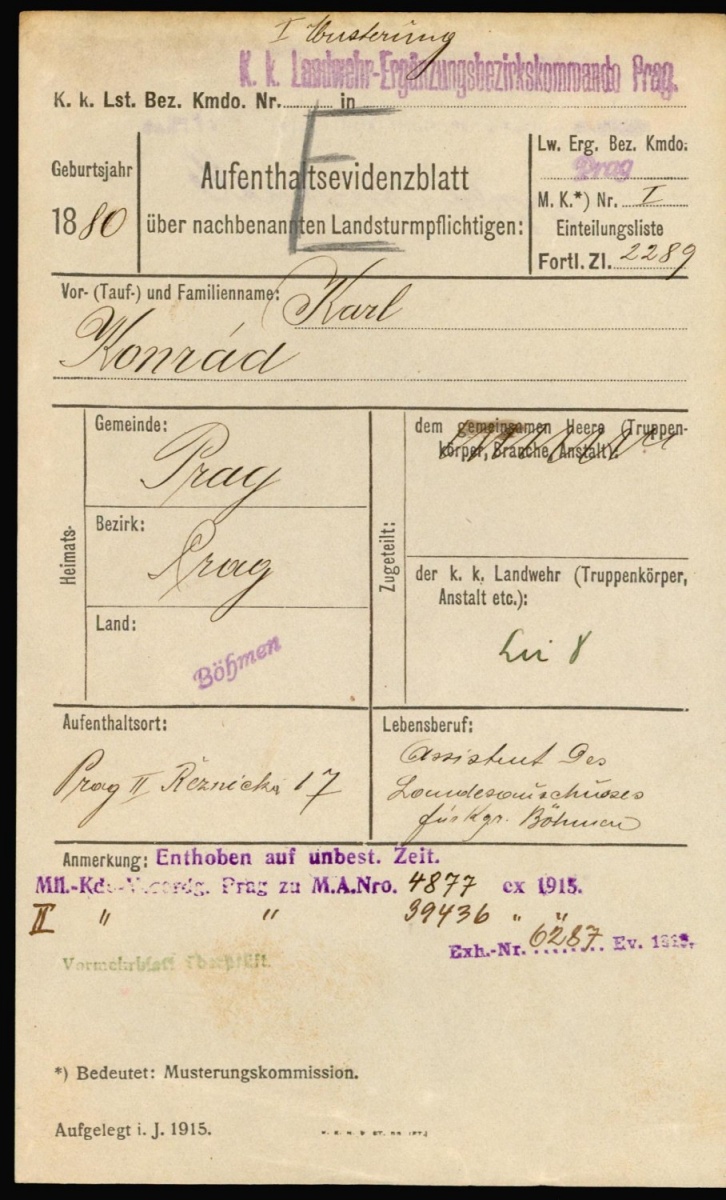 I Musterung
K. k. Landwehr-Ergänzungsbezirkskommando Prag.
K. k. Lst. Bez. Kmdo. Nr. in
E
Geburtsjahr
1880
Aufenthaltsevidenzblatt
über nachbenannten Landsturmpflichtigen:
Lw. Erg. Bez. Kmdo.
Prag
M. K.*) Nr. I
Einteilungsliste
Fortl. Zl. 2289
Vor- (Tauf-) und Familienname: Karl
Konrád
Heimats-
Gemeinde:
Prag
Bezirk:
Prag
Land:
Böhmen
Zugeteilt:
dem gemeinsamen Heere (Truppen-
körper, Branche, Anstalt):
der k. k. Landwehr (Truppenkörper,
Anstalt etc.):
8
Aufenthaltsort:
Prag II Řeznická 17
Lebensberuf:
Assistent des
Landesauschusses
für Kgr. Böhmen
Anmerkung: Enthoben auf unbest. Zeit.
Mil.-Kdo- Prag zu M.A.Nro. 4877 ex 1915.
II " " 39436 " "
Exh.-Nr. 6287 Ev.
Vormerkblatt überprüft.
*) Bedeutet: Musterungskommission.
Aufgelegt i. J. 1915.